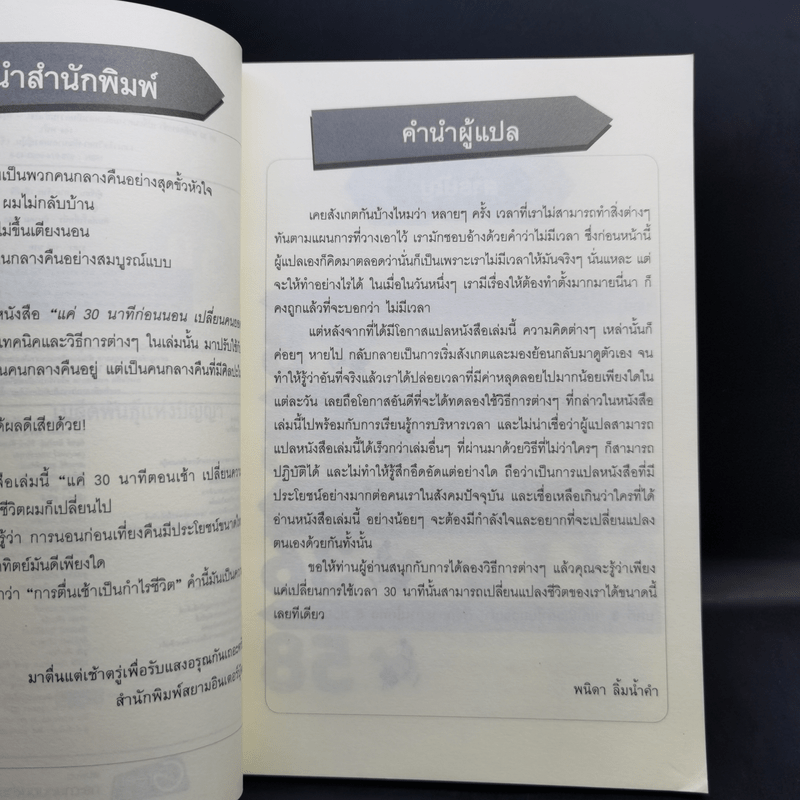 นำสำนักพิมพ์
เป็นพวกคนกลางคืนอย่างสุดขั้วหัวใจ
ผมไม่กลับบ้าน
ไม่ขึ้นเตียงนอน
คนกลางคืนอย่างสมบูรณ์แบบ
หนังสือ "แค่ 30 นาทีก่อนนอน เปลี่ยนคน
เทคนิคและวิธีการต่างๆ ในเล่มนั้น มาปรับใช้
นคนกลางคืนอยู่ แต่เป็นคนกลางคืนที่มีศิลปะ
ด้ผลดีเสียด้วย!
สือเล่มนี้ "แค่ 30 นาทีตอนเช้า เปลี่ยน
ชีวิตผมก็เปลี่ยนไป
รู้ว่า การนอนก่อนเที่ยงคืนมีประโยชน์ขนาด
ทิตย์มันดีเพียงใด
ว่า "การตื่นเช้าเป็นกำไรชีวิต" คำนี้มันเป็น
มาตื่นแต่เช้าตรู่เพื่อรับแสงอรุณกันเถอะ
สำนักพิมพ์สยามอินเตอร์
คำนำผู้แปล
เคยสังเกตกันบ้างไหมว่า หลายๆ ครั้ง เวลาที่เราไม่สามารถทำสิ่งต่างๆ
ทันตามแผนการที่วางเอาไว้ เรามักชอบอ้างด้วยคำว่าไม่มีเวลา ซึ่งก่อนหน้านี้
ผู้แปลเองก็คิดมาตลอดว่านั่นก็เป็นเพราะเราไม่มีเวลาให้มันจริงๆ นั่นแหละ แต่
จะให้ทำอย่างไรได้ ในเมื่อในวันหนึ่งๆ เรามีเรื่องให้ต้องทำตั้งมากมายนี่นา ก็
คงถูกแล้วที่จะบอกว่า ไม่มีเวลา
แต่หลังจากที่ได้มีโอกาสแปลหนังสือเล่มนี้ ความคิดต่างๆ เหล่านั้นก็
ค่อยๆ หายไป กลับกลายเป็นการเริ่มสังเกตและมองย้อนกลับมาดูตัวเอง จน
ทำให้รู้ว่าอันที่จริงแล้วเราได้ปล่อยเวลาที่มีค่าหลุดลอยไปมากน้อยเพียงใดใน
แต่ละวัน เลยถือโอกาสอันดีที่จะได้ทดลองใช้วิธีการต่างๆ ที่กล่าวในหนังสือ
เล่มนี้ไปพร้อมกับการเรียนรู้การบริหารเวลา และไม่น่าเชื่อว่าผู้แปลสามารถ
แปลหนังสือเล่มนี้ได้เร็วกว่าเล่มอื่นๆ ที่ผ่านมาด้วยวิธีที่ไม่ว่าใครๆ ก็สามารถ
ปฏิบัติได้ และไม่ทำให้รู้สึกอึดอัดแต่อย่างใด ถือว่าเป็นการแปลหนังสือที่มี
ประโยชน์อย่างมากต่อคนเราในสังคมปัจจุบัน และเชื่อเหลือเกินว่าใครที่ได้
อ่านหนังสือเล่มนี้ อย่างน้อยๆ จะต้องมีกำลังใจและอยากที่จะเปลี่ยนแปลง
ตนเองด้วยกันทั้งนั้น
ขอให้ท่านผู้อ่านสนุกกับการได้ลองวิธีการต่างๆ แล้วคุณจะรู้ว่าเพียง
แค่เปลี่ยนการใช้เวลา 30 นาทีนั้นสามารถเปลี่ยนแปลงชีวิตของเราได้ขนาดนี้
เลยทีเดียว
พนิตา ลิ้มน้ำคำ